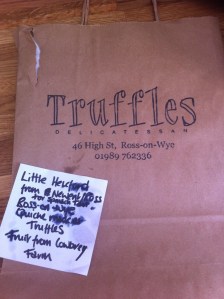 Truffles
DELICATESSEN
46 High St, Ross-on-Wye
01989 762336
Little Hereford
from Newent/Ross
Ross-on-Wye
Quiche
Truffles
Fruit from Cowdrey
Farm